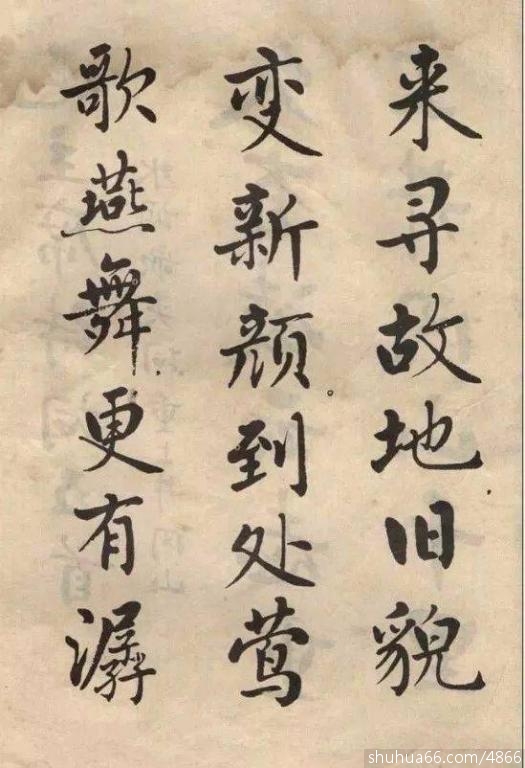 来寻故地旧貌
变新颜。到处莺
歌燕舞更有潺
shuhua66.com/4866